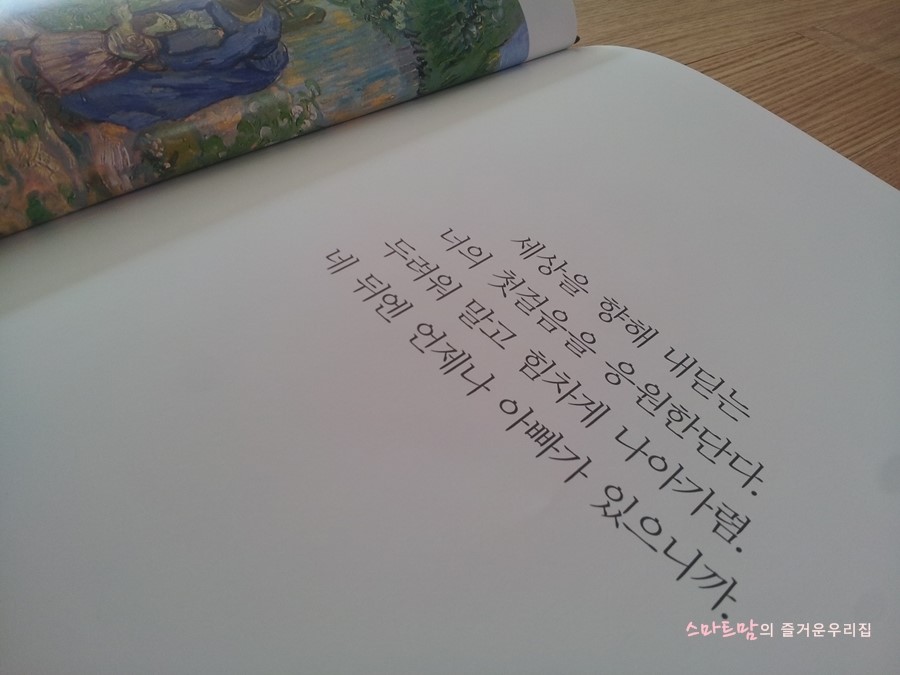 세상을 향해 내딛는
너의 첫걸음을 응원한단다.
두려워 말고 힘차게 나아가렴.
네 뒤엔 언제나 아빠가 있으니까.
스마트맘의 즐거운우리집